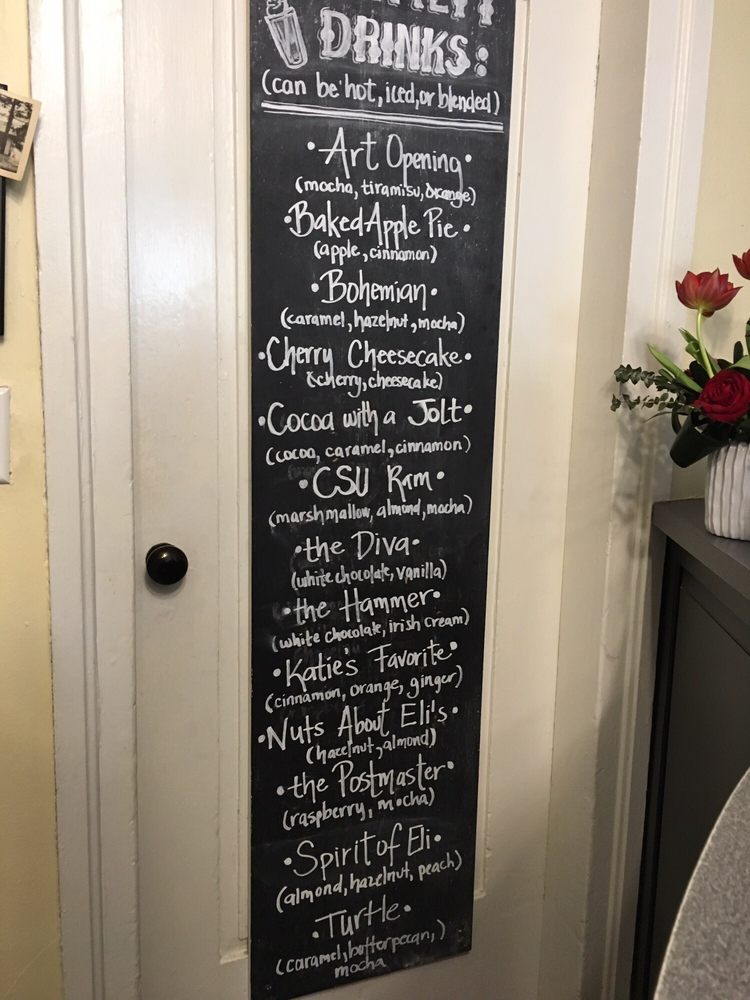 DRINKS:
(can be hot, iced, or blended)
• Art Opening •
(mocha, tiramisu, orange)
• Baked Apple Pie •
(apple, cinnamon)
• Bohemian •
(caramel, hazelnut, mocha)
• Cherry Cheesecake •
(cherry, cheesecake)
• Cocoa with a Jolt •
(cocoa, caramel, cinnamon)
• CSU Ram •
(marshmallow, almond, mocha)
• the Diva •
(white chocolate, vanilla)
• the Hammer •
(white chocolate, irish cream)
• Katie's Favorite •
(cinnamon, orange, ginger)
• Nuts About Eli's •
(hazelnut, almond)
• the Postmaster •
(raspberry, mocha)
• Spirit of Eli •
(almond, hazelnut, peach)
• Turtle •
(caramel, butterpecan, )
mocha